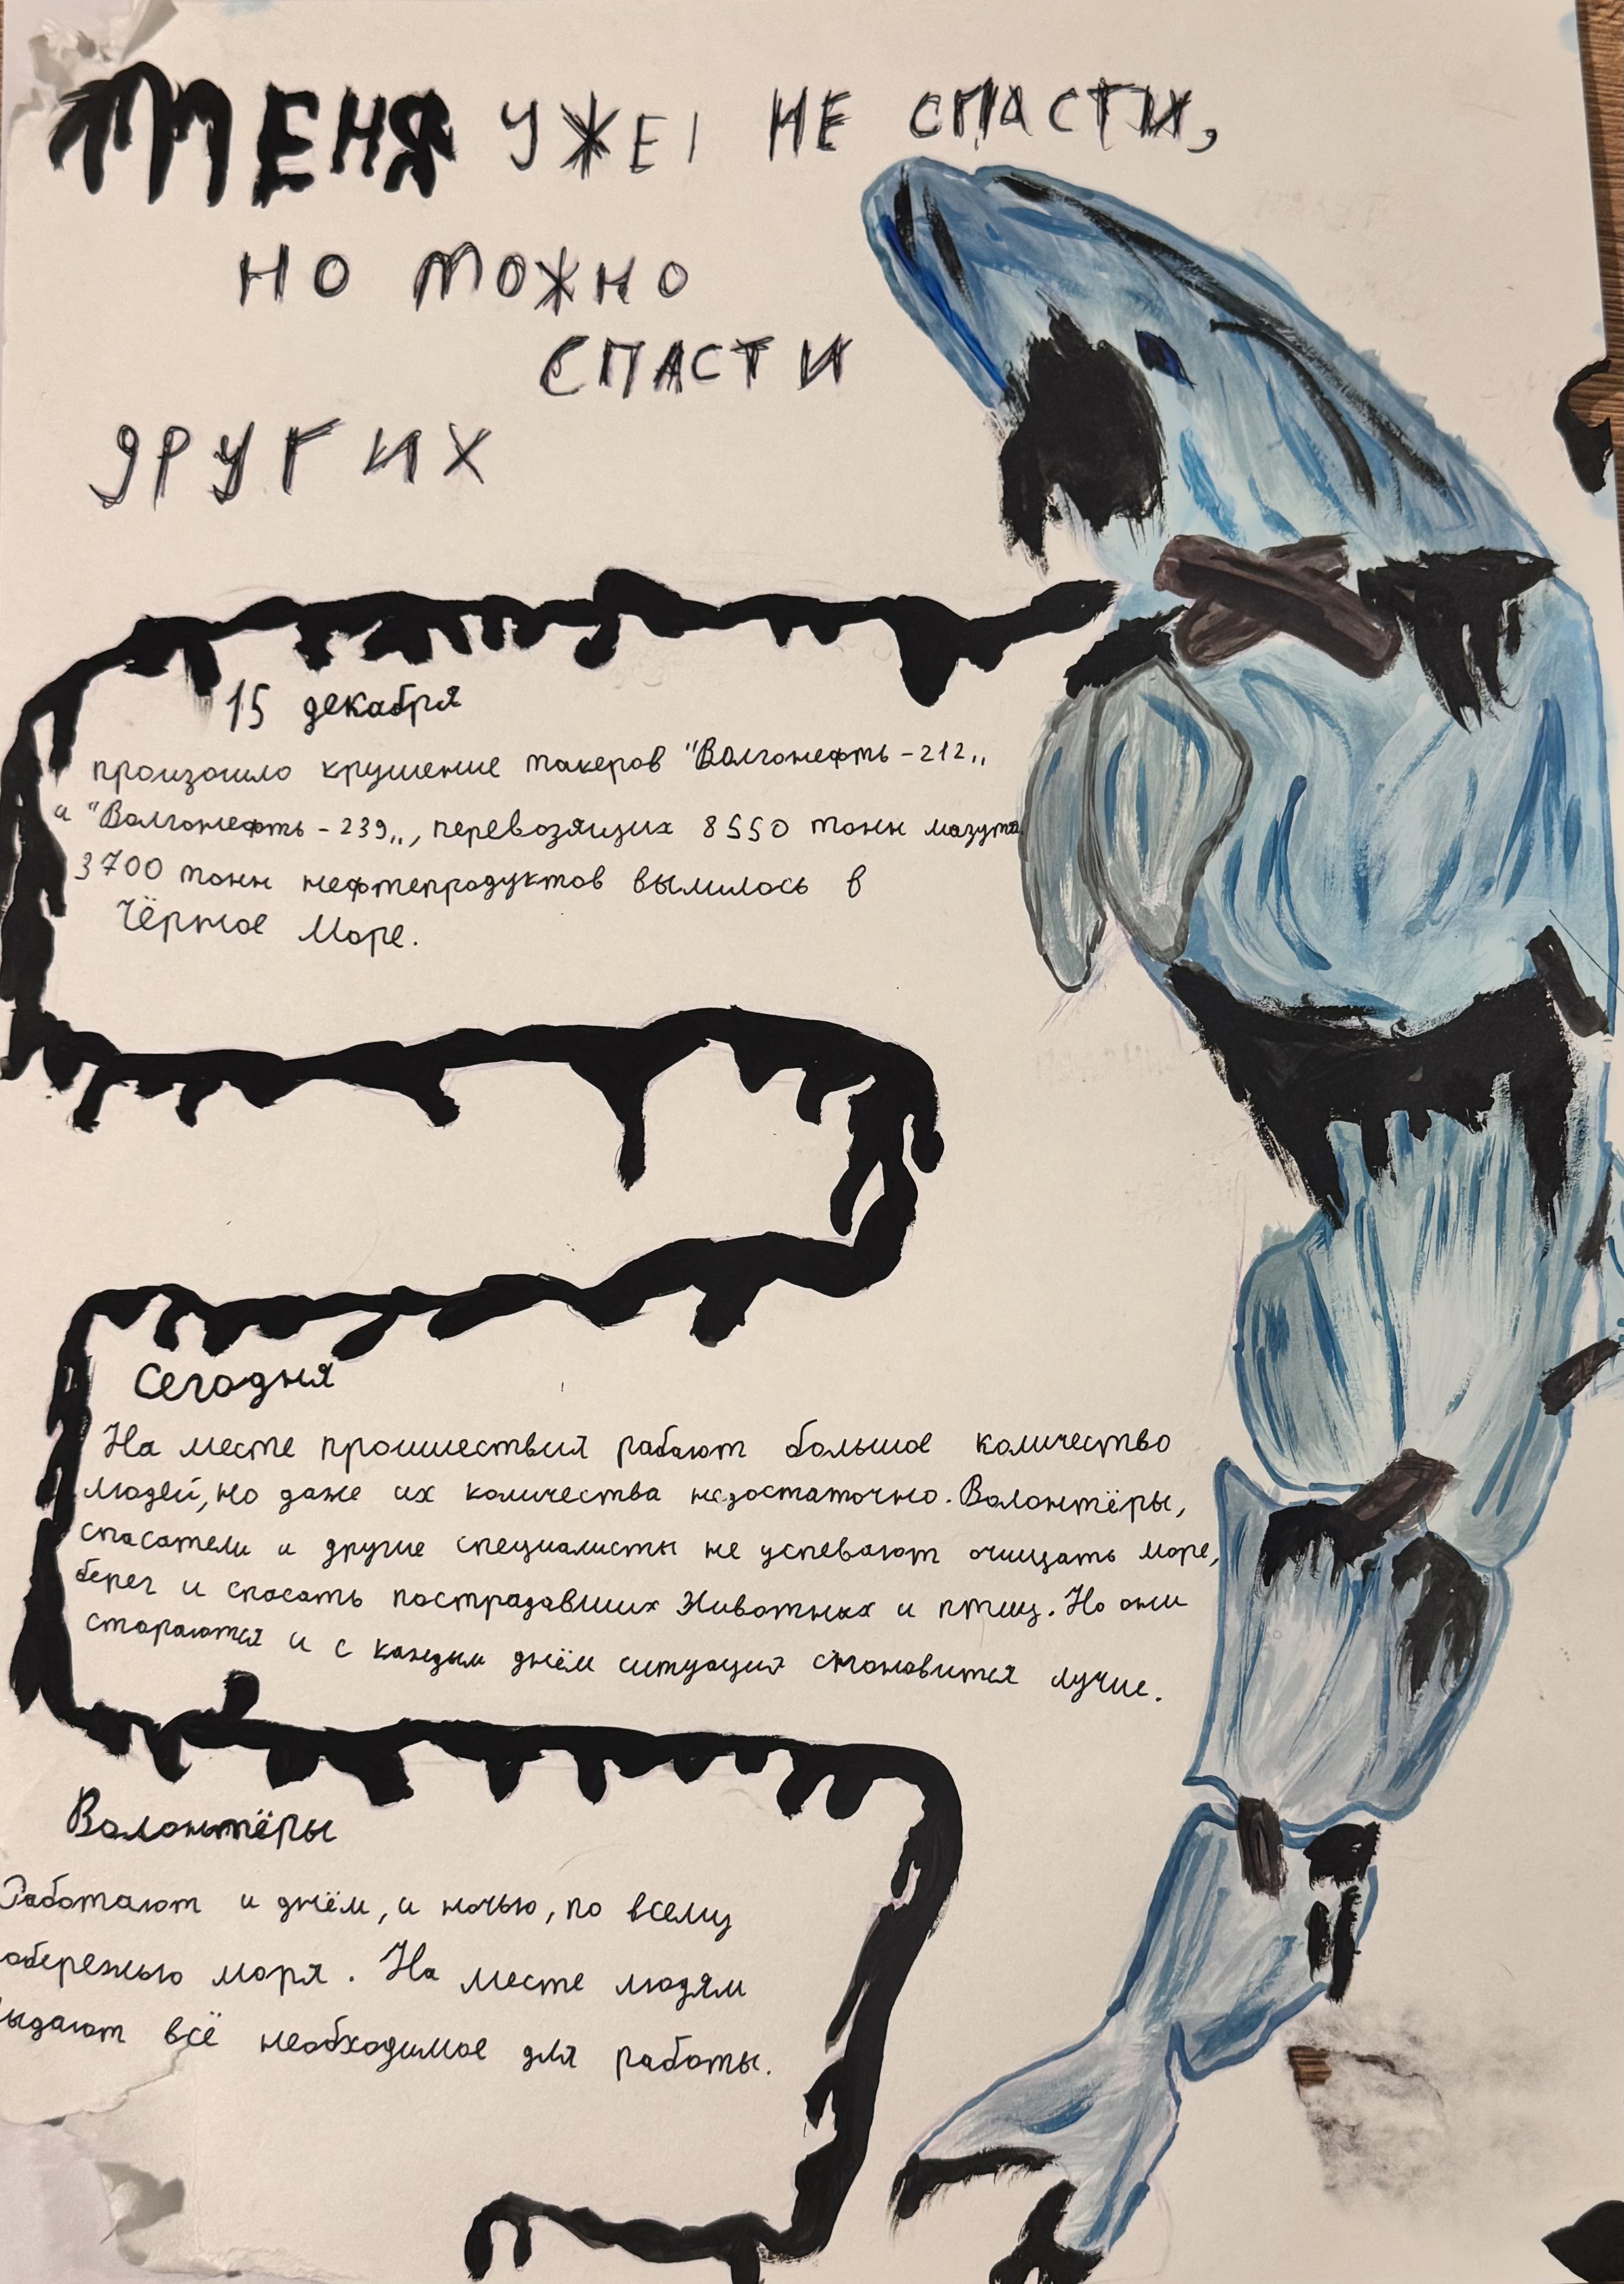 МЕНЯ УЖЕ НЕ СПАСТИ,
НО МОЖНО
СПАСТИ
ДРУГИХ
15 декабря
произошло крушение такеров "Волгонефть - 212„
и "Волгонефть - 239„, перевозящих 8550 тонн мазута
3700 тонн нефтепродуктов вылилось в
Чёрное Море.
Сегодня
На месте проишествия рабают большое количество
людей, но даже их количества недостаточно. Волонтёры,
спасатели и другие специалисты не успевают очищать море,
берег и спасать пострадавших животных и птиц. Но они
стораются и с каждым днём ситуация становится лучше.
Волонтёры
Работают и днём, и ночью, по всему
обережью моря. На месте людям
ыдают всё необходимое для работы.